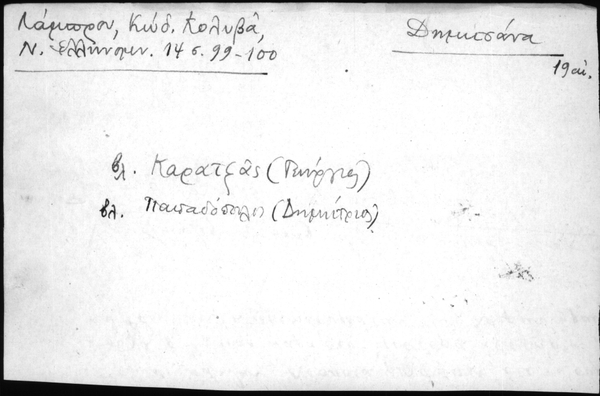 Λάμπρου, Κώδ. Κολυβᾶ,
Ν. Ἑλληνομν. 14 σ. 99-100
Δημητσάνα
19 αἰ.
βλ. Καρατζᾶς (Γεώργιος)
βλ. Παπαδόπουλος (Δημήτριος)